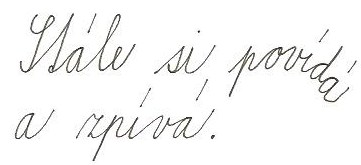 Stále si povídá
a zpívá.